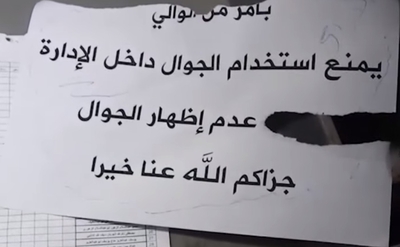 بأمر من الوالي
يمنع استخدام الجوال داخل الإدارة
عدم إظهار الجوال
جزاكم اللَّه عنا خيرا